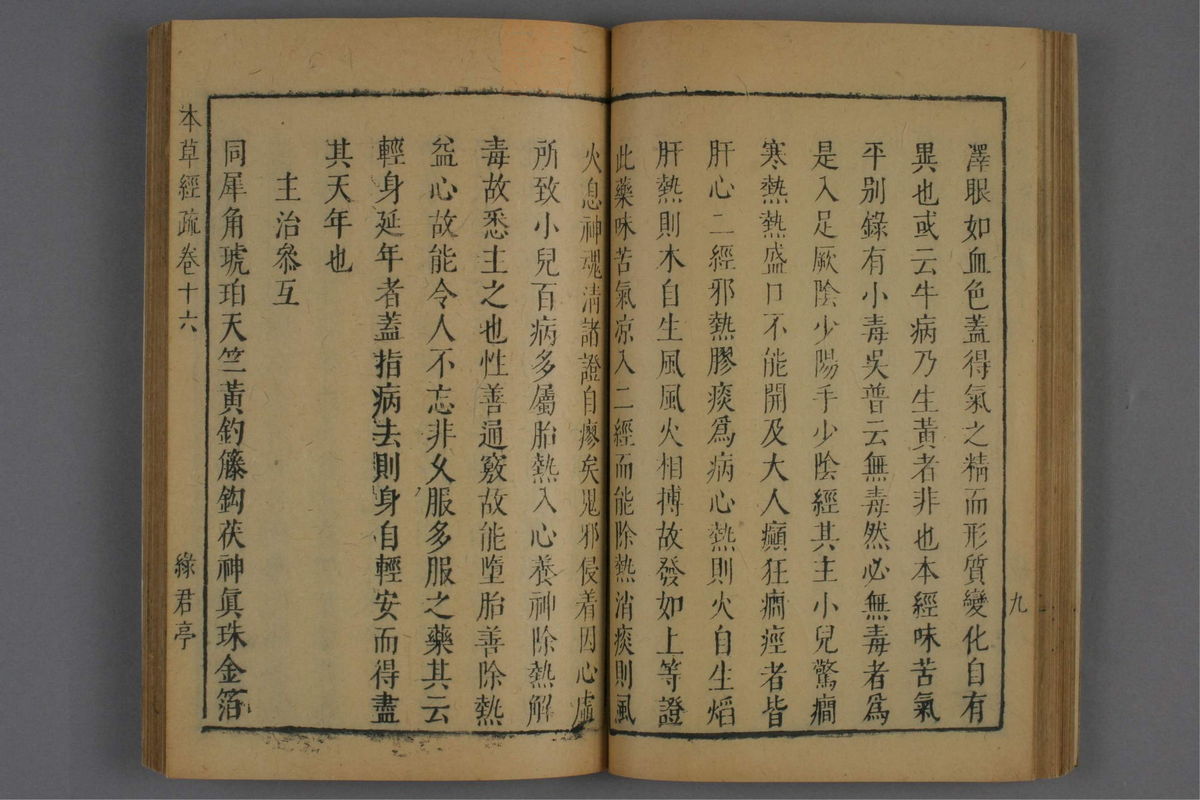 九
澤眼如血色蓋得氣之精而形質變化自有
異也或云牛病乃生黃者非也本經味苦氣
平別錄有小毒吳普云無毒然必無毒者爲
是入足厥陰少陽手少陰經其主小兒驚癇
寒熱熱盛口不能開及大人癲狂癇痙者皆
肝心二經邪熱膠痰爲病心熱則火自生熖
肝熱則木自生風風火相搏故發如上等證
此藥味苦氣凉入二經而能除熱消痰則風
火息神魂淸諸證自瘳矣鬼邪侵着因心虛
所致小兒百病多屬胎熱入心養神除熱解
毒故悉主之也性善通竅故能墮胎善除熱
益心故能令人不忘非久服多服之藥其云
輕身延年者蓋指病去則身自輕安而得盡
其天年也
主治叅互
同犀角琥珀天竺黃釣籐鈎茯神眞珠金箔
本草經疏卷十六
綠君亭